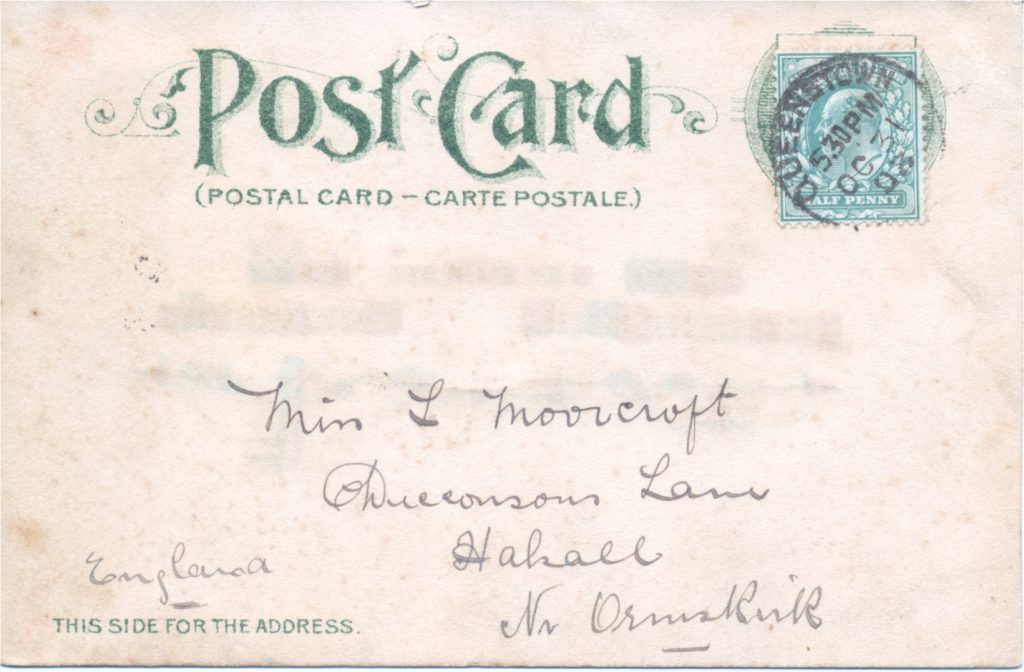 Post Card
(POSTAL CARD – CARTE POSTALE.)
QUEENSTOWN
5.30 PM
OC 31
HALF PENNY
Miss L Moorcroft
Lane
Halsall
Nr Ormskirk
England
THIS SIDE FOR THE ADDRESS.